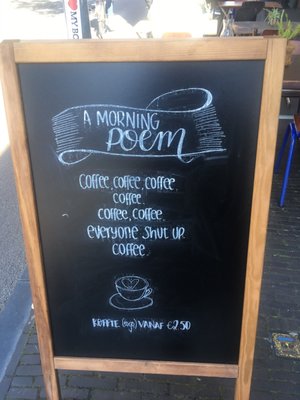 MY BO
A MORNING
POEM
Coffee, coffee, coffee.
coffee.
coffee, coffee.
everyone shut up.
coffee.
KOFFIE (togo) VANAF €2.50